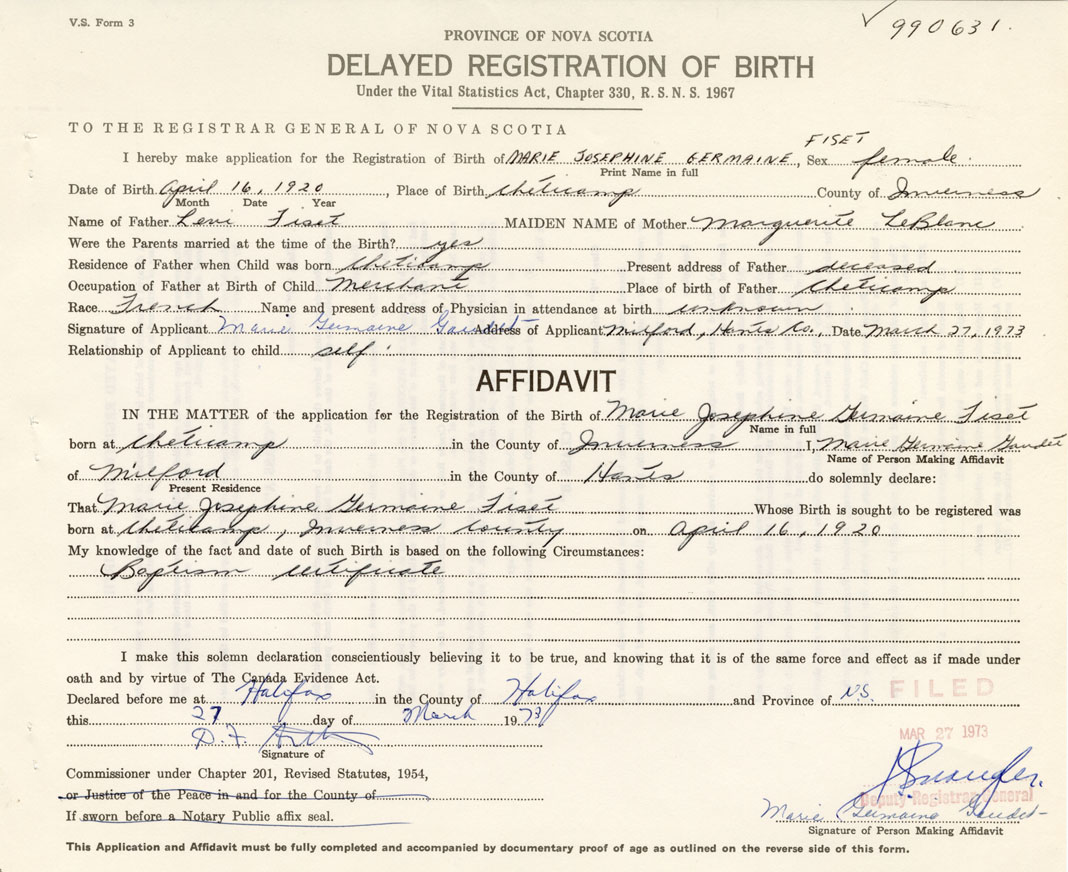 V.S. Form 3
990631.
PROVINCE OF NOVA SCOTIA
DELAYED REGISTRATION OF BIRTH
Under the Vital Statistics Act, Chapter 330, R.S.N.S. 1967
TO THE REGISTRAR GENERAL OF NOVA SCOTIA
FISET
I hereby make application for the Registration of Birth of MARIE JOSEPHINE GERMAINE, Sex female.
Print Name in full
Date of Birth April 16, 1920, Place of Birth Cheticamp County of Inverness
Month Date Year
Name of Father Levi Fiset MAIDEN NAME of Mother Marguerite LeBlanc
Were the Parents married at the time of the Birth? yes
Residence of Father when Child was born Cheticamp Present address of Father deceased
Occupation of Father at Birth of Child Merchant Place of birth of Father Cheticamp
Race French Name and present address of Physician in attendance at birth unknown
Signature of Applicant Marie Germaine Gaudet Address of Applicant Milford, Hants Co., Date March 27, 1973
Relationship of Applicant to child self
AFFIDAVIT
IN THE MATTER of the application for the Registration of the Birth of Marie Josephine Germaine Fiset
Name in full
born at Cheticamp in the County of Inverness I, Marie Germaine Gaudet
Name of Person Making Affidavit
of Milford in the County of Hants do solemnly declare:
Present Residence
That Marie Josephine Germaine Fiset Whose Birth is sought to be registered was
born at Cheticamp, Inverness County on April 16, 1920
My knowledge of the fact and date of such Birth is based on the following Circumstances:
Baptism Certificate
I make this solemn declaration conscientiously believing it to be true, and knowing that it is of the same force and effect as if made under
oath and by virtue of The Canada Evidence Act.
Declared before me at Halifax in the County of Halifax and Province of N.S.
FILED
this 27 day of March 1973
MAR 27 1973
D.F.
Signature of
Commissioner under Chapter 201, Revised Statutes, 1954,
or Justice of the Peace in and for the County of
Deputy Registrar General
If sworn before a Notary Public affix seal.
Marie Germaine Gaudet
Signature of Person Making Affidavit
This Application and Affidavit must be fully completed and accompanied by documentary proof of age as outlined on the reverse side of this form.